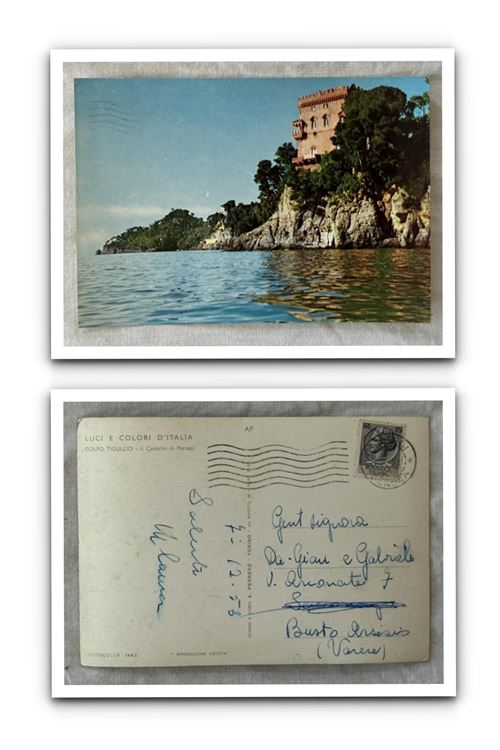 LUCI E COLORI D'ITALIA
GOLFO TIGULLIO - Il Castello di Paraggi
AP
Saluti
7-12-58
Gent Signora
Da-Gian e Gabriele
V. Arconate 7
Busto Arsizio
(Varese)
EDIZIONI E STAMPA A. PERRERO - TORINO
FOTOCOLOR 1442
RIPRODUZIONE VIETATA